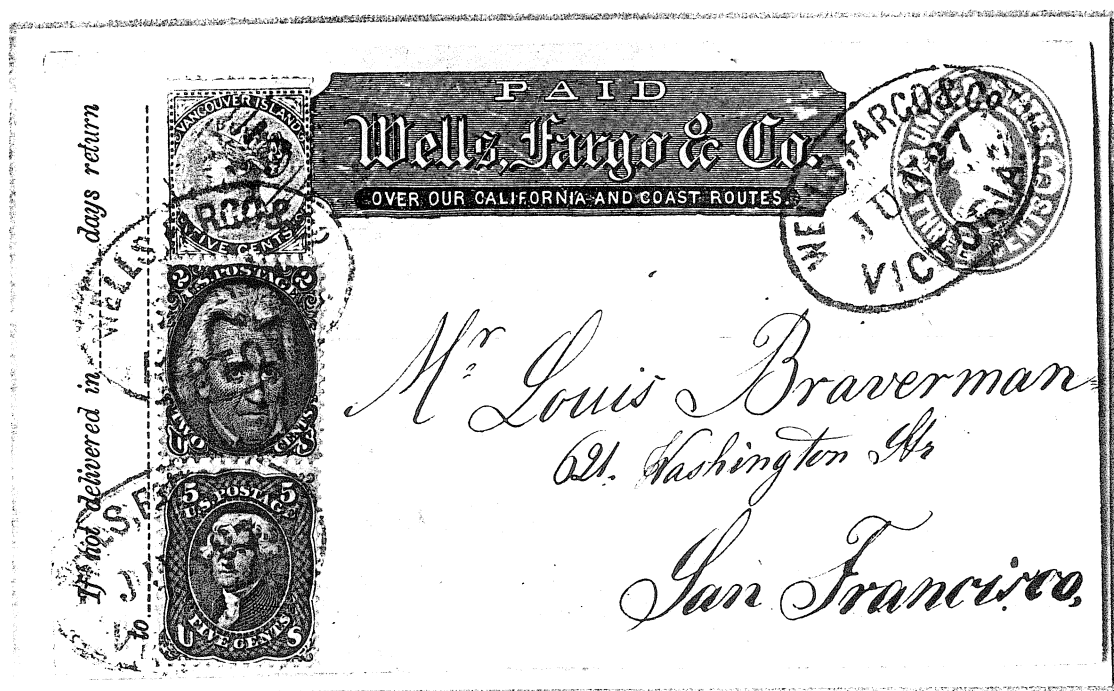 If not delivered in days return
to
VANCOUVER ISLAND
FIVE CENTS
2 U.S. POSTAGE 2
TWO CENTS
U S
5 5
U.S. POSTAGE
FIVE CENTS
U S
PAID
Wells, Fargo & Co.
OVER OUR CALIFORNIA AND COAST ROUTES.
WELLS FARGO & Co
JUL 27
VICTORIA
UNITED STATES
THREE CENTS
WELLS
RGO &
Mr. Louis Braverman
621. Washington Str
San Francisco,